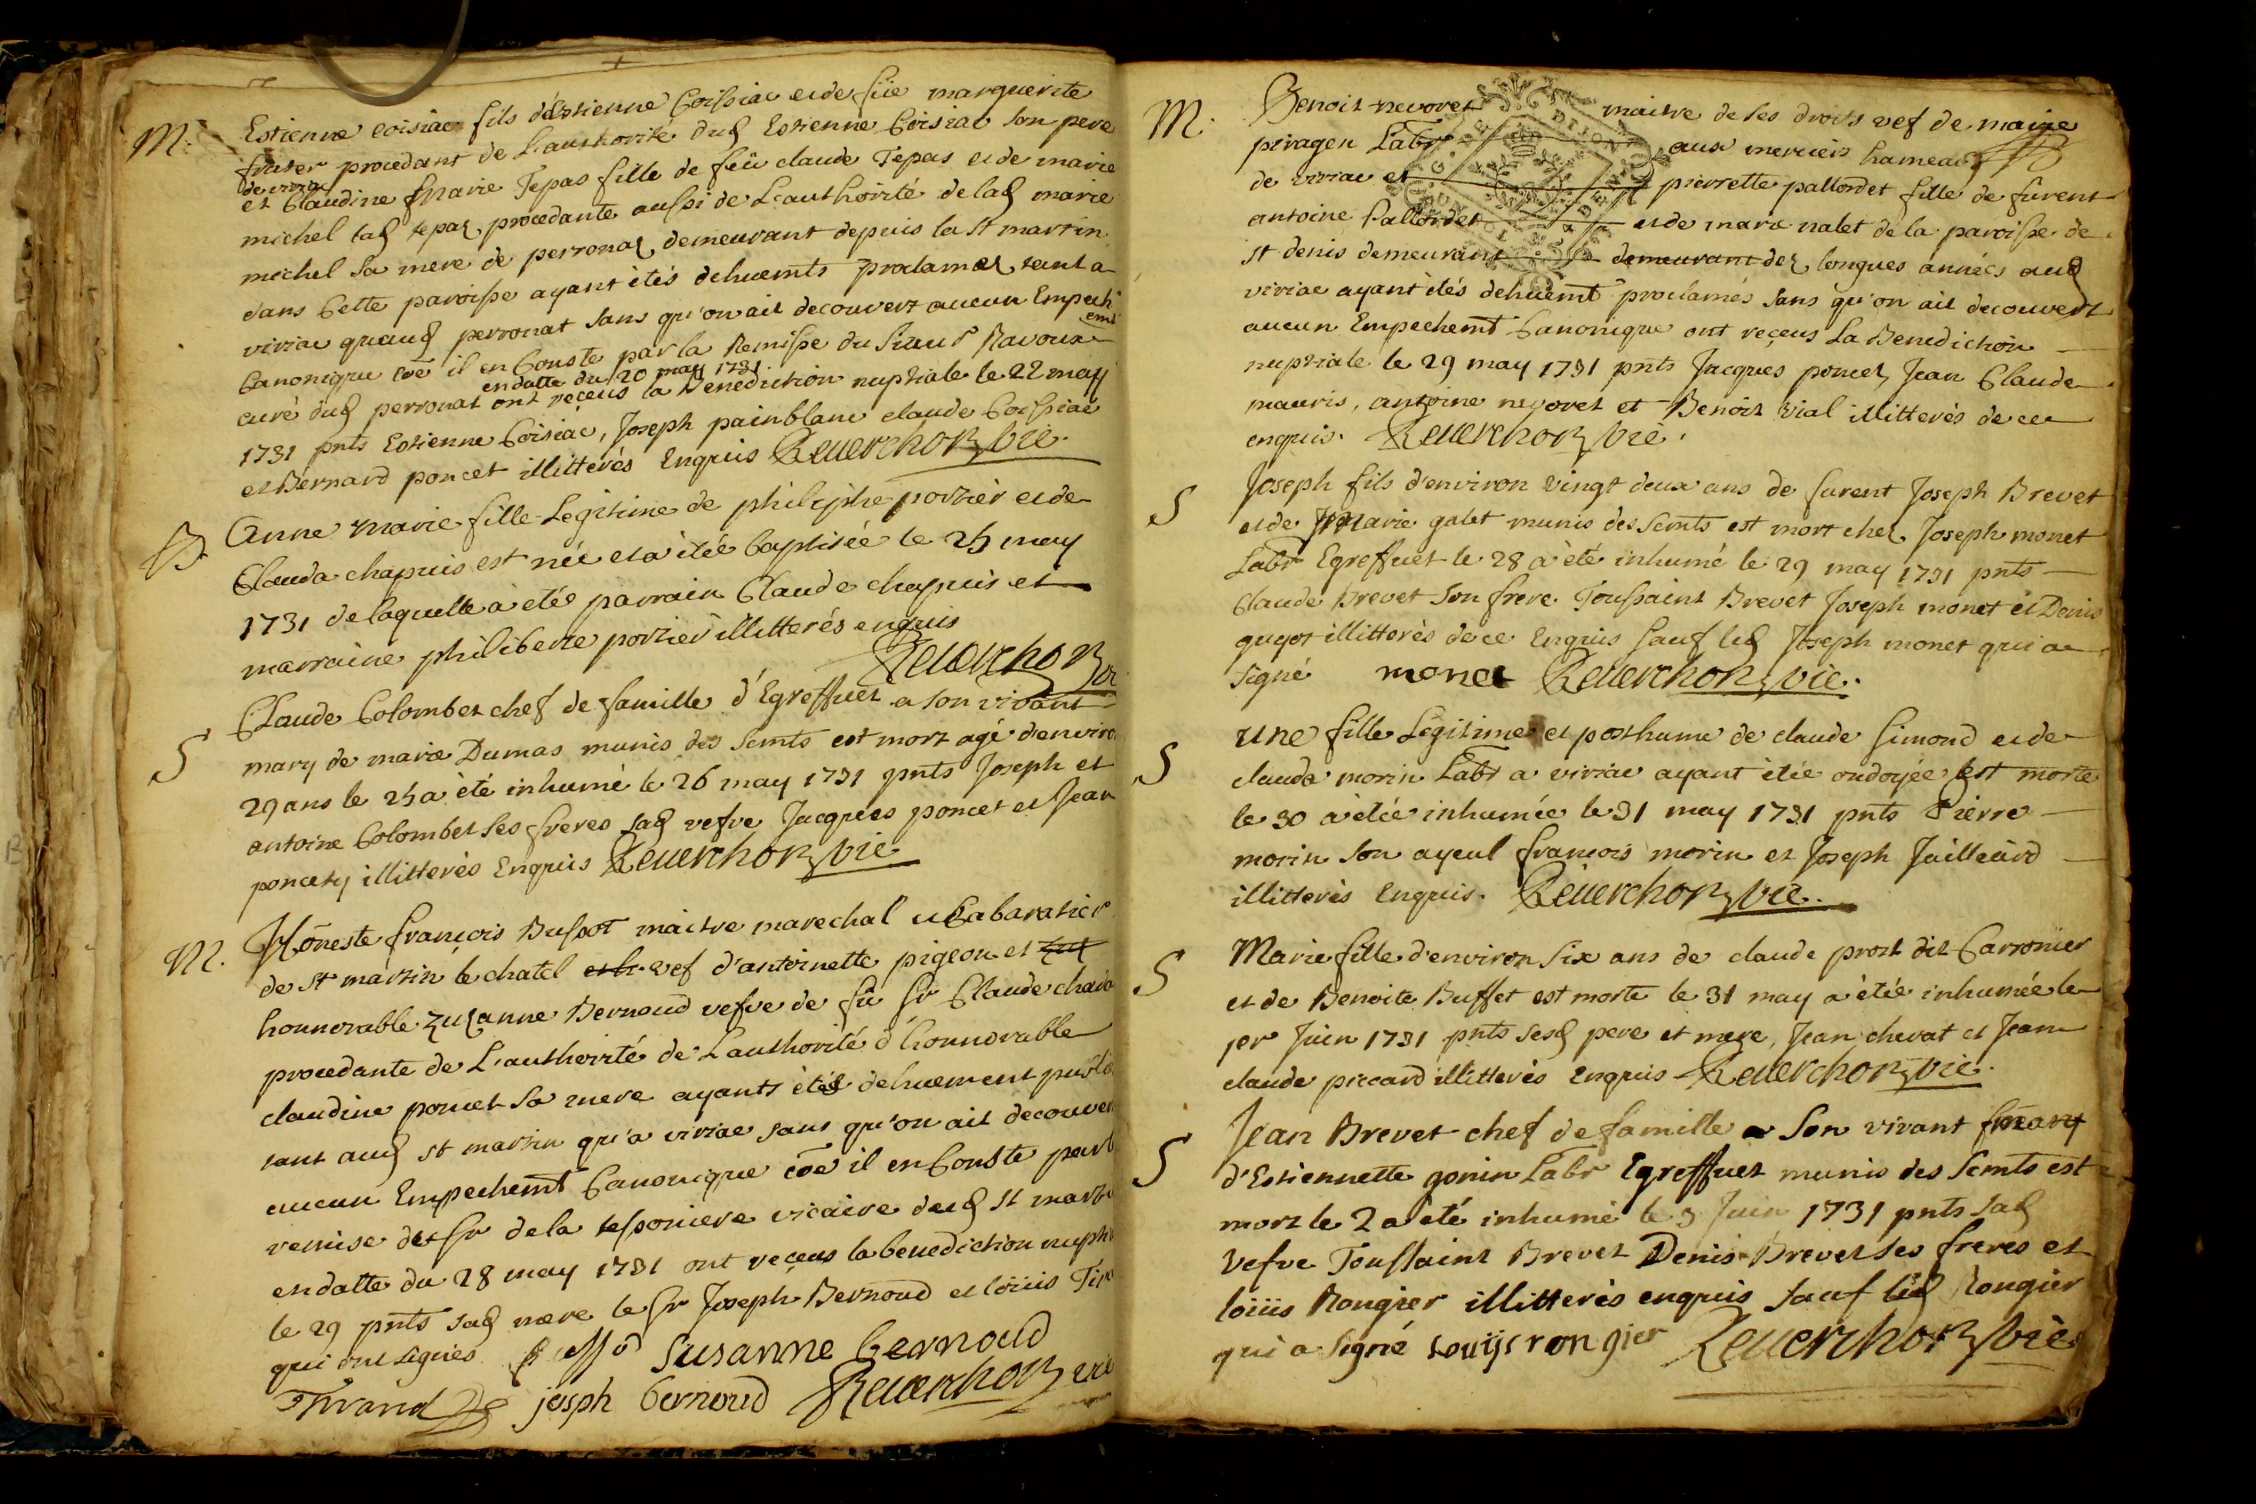 M. Estienne coisiac fils d'Estienne Coissiac et de füe marguerite
fruter procedant de L'authorité dud Estienne Coisiac son pere
de viriac
et Claudine Marie Tepas fille de feü claude Tepas et de marie
michel lad tepaz procedante aussi de L'authorité de lad marie
michel sa mere de perronaz demeurant depuis la st martin
dans Cette paroisse ayant étés dehuemts proclamez tant a
viriac qu'aud perronat sans qu'on ait decouvert aucun Empech
emt
Canonique coe il en Conste par la Remisse du Sieur Ravoux
en datte du 20 may 1731
curé dud perronat ont reçeus la Benediction nuptiale le 22 may
1731 pnts Estienne Coisiac, Joseph painblanc claude Coissiac
et Bernard poncet illitterés Enquis Reverchon vic.
B Anne Marie fille Legitime de philiphe portier et de
Clauda chapuis est née et a étée baptisée le 25 may
1731 de laquelle a etée parrain Claude chapuis et
marraine philiberte portier illitterés enquis
Reverchon vic
S Claude Colombet chef de famille d'Egreffuet a son vivant
mary de marie Dumas munis des Semts est mort agé d'enviro
29 ans le 25 a été inhumé le 26 may 1731 pnts Joseph et
antoine Colombet ses freres sad vefve Jacques poncet et Jean
poncety illitterés Enquis Reverchon vic
M. Honeste françois Bussot maitre marechal et Cabaratier
de st martin le chatel vef d'antoinette pigeon et
honnorable Zuzanne Bernoud vefve de fü Sr Claude
procedante de L'authorité de L'authorité d'honnorable
claudine poncet sa mere ayants étés dehuement
tant aud st martin qu'a viriac sans qu'on ait decouver
aucun Empechemt Canonique coe il en Conste par l
remise de Sr de la vicaire dud st
en datte du 28 may 1731 ont reçeus la benediction nupti
le 29 pnts sad mere le Sr Joseph Bernoud et loüis
qui ont signés Susanne bernoud
joseph bernoud Reverchon vic
M. Benoit nevoret maitre de ses droits vef de marie
piragen Labr aux merciers hameau
de viriac et pierrette pallordet fille de furent
antoine Pallordet et de marie nalet de la paroisse de
st denis demeurant demeurant dez longues années aud
viriac ayant étés dehuemt proclamés sans qu'on ait decouvert
aucun Empechemt Canonique ont reçeus La Benediction
nuptiale le 29 may 1731 pnts Jacques poncet, Jean Claude
mauris, antoine nevoret et Benoit vial illitterés de ce
enquis. Reverchon vic.
S Joseph fils d'environ vingt deux ans de furent Joseph Brevet
et de Marie galet munis des Semts est mort chez Joseph monet
Labr Egreffuet le 28 a été inhumé le 29 may 1731 pnts
Claude Brevet son frere Toussaint Brevet Joseph monet et Denis
guyot illitterés de ce Enquis sauf led Joseph monet qui a
signé monet Reverchon vic.
S une fille Legitime et posthume de claude Simond et de
clauda morin Labr a viriac ayant étée ondoyée est morte
le 30 a étée inhumée le 31 may 1731 pnts Pierre
morin son ayeul françois morin et Joseph Jailleard
illitterés Enquis. Reverchon vic.
S Marie fille d'environ Six ans de claude prost dit Carronier
et de Benoite Buffet est morte le 31 may a étée inhumée le
1er Juin 1731 pnts sesd pere et mere, Jean chevat et Jean
claude piccard illitterés Enquis Reverchon vic.
S Jean Brevet chef de famille a Son vivant mary
d'Estiennette gonin Labr Egreffuet munis des Semts est
mort le 2 a été inhumé le 3 Juin 1731 pnts sad
Vefve Toussaint Brevet Denis Brevet ses freres et
loüis Rongier illitterés enquis sauf led Rongier
qui a signé Louijs rongier Reverchon vic